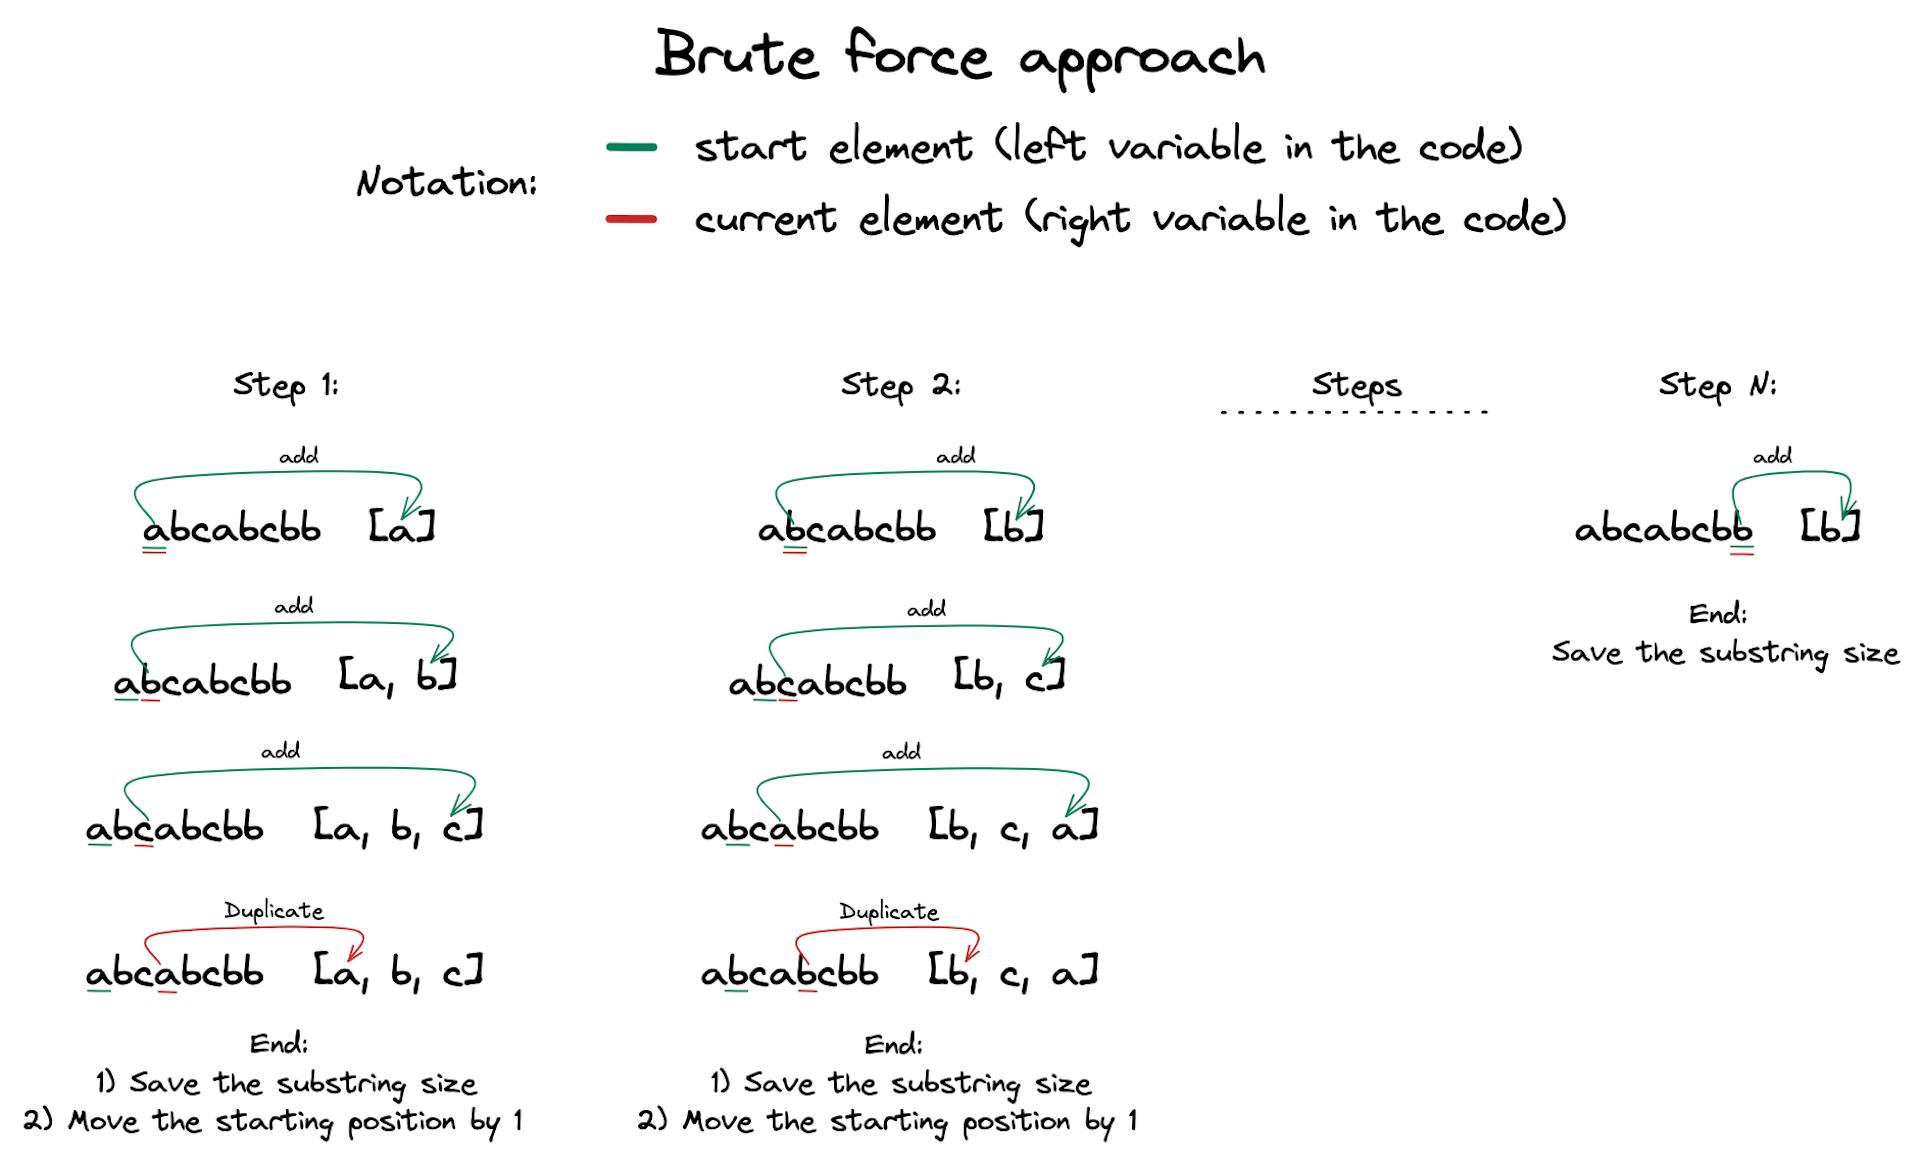 Brute force approach
Notation:
start element (left variable in the code)
current element (right variable in the code)
Step 1:
add
abcabcbb [a]
add
abcabcbb [a, b]
add
abcabcbb [a, b, c]
Duplicate
abcabcbb [a, b, c]
End:
1) Save the substring size
2) Move the starting position by 1
Step 2:
add
abcabcbb [b]
add
abcabcbb [b, c]
add
abcabcbb [b, c, a]
Duplicate
abcabcbb [b, c, a]
End:
1) Save the substring size
2) Move the starting position by 1
Steps
Step N:
add
abcabcbb [b]
End:
Save the substring size